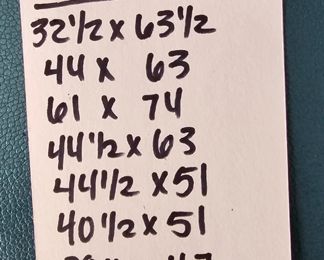 32 1/2 x 63 1/2
44 x 63
61 x 74
44 1/2 x 63
44 1/2 x 51
40 1/2 x 51